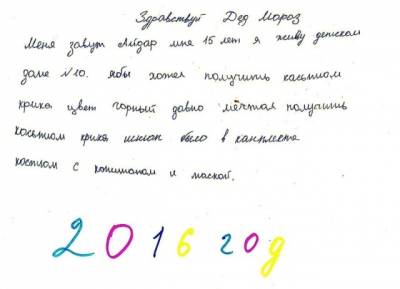 Здравствуй Дед Мороз
Меня завут Айдар мне 15 лет я живу детском
доме №10. ябы хотел получить касьтюм
крика цвет чорный давно мечтал получить
косьтюм крика штоп было в камплекте
костюм с капишоном и маской.
2016 год